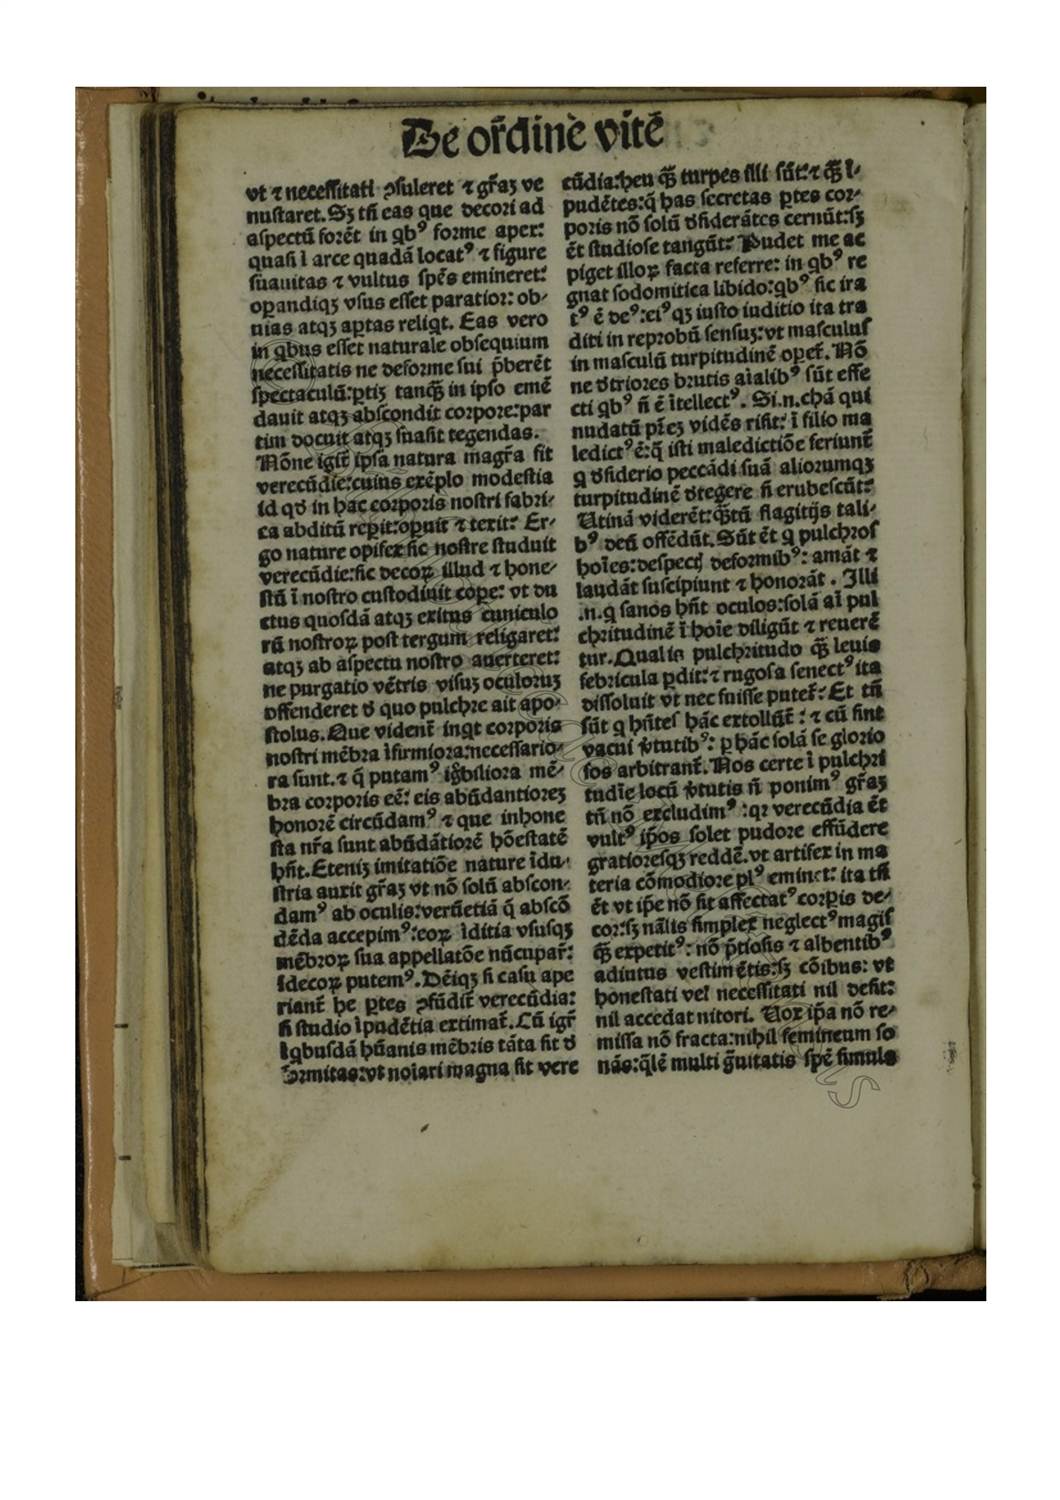 De ordine vite
vt ⁊ necessitati ꝯsuleret ⁊ gr̃aꝫ ve
nustaret. Sꝫ tñ eas que decori ad
aspectũ forẽt in qbꝰ forme apex:
quasi ĩ arce quadã locatꝰ ⁊ figure
suauitas ⁊ vultus spẽs emineret:
oꝑandiqꝫ vsus esset paratior: ob-
uias atqꝫ aꝑtas reliqt. Eas vero
in qbus esset naturale obsequium
necessitatis ne deforme sui p̃berẽt
spectaculũ: ꝑtiꝫ tanq̃ in ipso emẽ
dauit atqꝫ abscondit corpore: par
tim docuit atqꝫ suasit tegendas.
Nõne igit̃ ipsa natura magr̃a sit
verecũdie: cuius exẽplo modestia
id qđ in hac corporis nostri fabri-
ca abditũ reꝑit: oꝑuit ⁊ texit: Er-
go nature opifex sic nostre studuit
verecũdie: sic decoꝝ illud ⁊ hone-
stũ ĩ nostro custodiuit coꝑe: vt du
ctus quosdã atqꝫ exitus cuniculo
rũ nostroꝝ post tergum religaret:
atqꝫ ab aspectu nostro auerteret:
ne purgatio vẽtris visuꝫ oculoruꝫ
offenderet đ quo pulchre ait apo-
stolus. Que vident̃ inqt corporis
nostri mẽbra ĩfirmiora: necessario-
ra sunt. ⁊ q̃ putamꝰ ig̃biliora mẽ-
bra corporis eẽ: eis abũdantioreꝫ
honorẽ circũdamꝰ ⁊ que inhone
sta nr̃a sunt abũdãtiorẽ hõestatẽ
hñt. Eteniꝫ imitatiõe nature ĩdu-
stria auxit gr̃aꝫ vt nõ solũ abscon-
damꝰ ab oculis: verũetiã q̃ abscõ
dẽda accepimꝰ: eoꝝ ĩditia vsusqꝫ
mẽbroꝝ sua appellatõe nũcupar̃:
ĩdecoꝝ putemꝰ. Dẽiqꝫ si casu ape
riant̃ he ꝑtes ꝯfũdit̃ verecũdia:
si studio ĩpudẽtia extimat̃. Cũ igr̃
ĩqbusdã hũanis mẽbris tãta sit đ
formitas: vt noiari magna sit vere
cũdia: heu q̃ turpes illi sũt: ⁊ q̃ ĩ-
pudẽtes: q̃ has secretas ꝑtes cor-
poris nõ solũ đsiderãtes cernũt: sꝫ
ẽt studiose tangũt: Pudet me ac
piget illoꝝ facta referre: in qbꝰ re
gnat sodomitica libido: qbꝰ sic ira
tꝰ ẽ deꝰ: eiꝰ qꝫ iusto iuditio ita tra
diti in reprobũ sensuꝫ: vt masculus
in masculũ turpitudinẽ oꝑet̃. Nõ
ne đtriores brutis aĩalibꝰ sũt effe
cti qbꝰ ñ ẽ ĩtellectꝰ. Si.n.chã qui
nudatũ pr̃eꝫ vidẽs risit: ĩ filio ma
ledictꝰ ẽ: q̃ isti maledictiõe feriunt̃
q đsiderio peccãdi suã aliorumqꝫ
turpitudinẽ đtegere ñ erubescũt:
Utinã viderẽt: q̃tũ flagitijs tali-
bꝰ deũ offẽdũt. Sũt ẽt q pulchros
hoĩes: despectꝫ deformibꝰ: amãt ⁊
laudãt suscipiunt ⁊ honorãt. Illi
.n.q sanos hñt oculos: solã aĩ pul
chritudinẽ ĩ hoĩe diligũt ⁊ reuerẽ
tur. Qualis pulchritudo q̃ leuis
febricula ꝑdit: ⁊ rugosa senectꝰ ita
dissoluit vt nec fuisse putet̃: Et tñ
sũt q hñtes hãc extollũt̃: ⁊ cũ sint
vacui v̓tutibꝰ: ꝑ hãc solã se glorio
sos arbitrant̃. Nos certe ĩ pulchri
tudĩe locũ v̓tutis ñ ponimꝰ gr̃aꝫ
tñ nõ excludimꝰ: qꝛ verecũdia ẽt
vultꝰ ip̃os solet pudore effũdere
gratioresqꝫ reddẽ. vt artifex in ma
teria cõmodiore plꝰ eminet: ita tñ
ẽt vt ip̃e nõ sit affectatꝰ corꝑis de-
cor: sꝫ nãlis simplex neglectꝰ magis
q̃ expetitꝰ: nõ p̃tiosis ⁊ albentibꝰ
adiutus vestimẽtis: sꝫ cõibus: vt
honestati vel necessitati nil desit:
nil accedat nitori. Uox ip̃a nõ re-
missa nõ fracta: nihil femineum so
nãs: q̃lẽ multi g̃uitatis spẽ simula